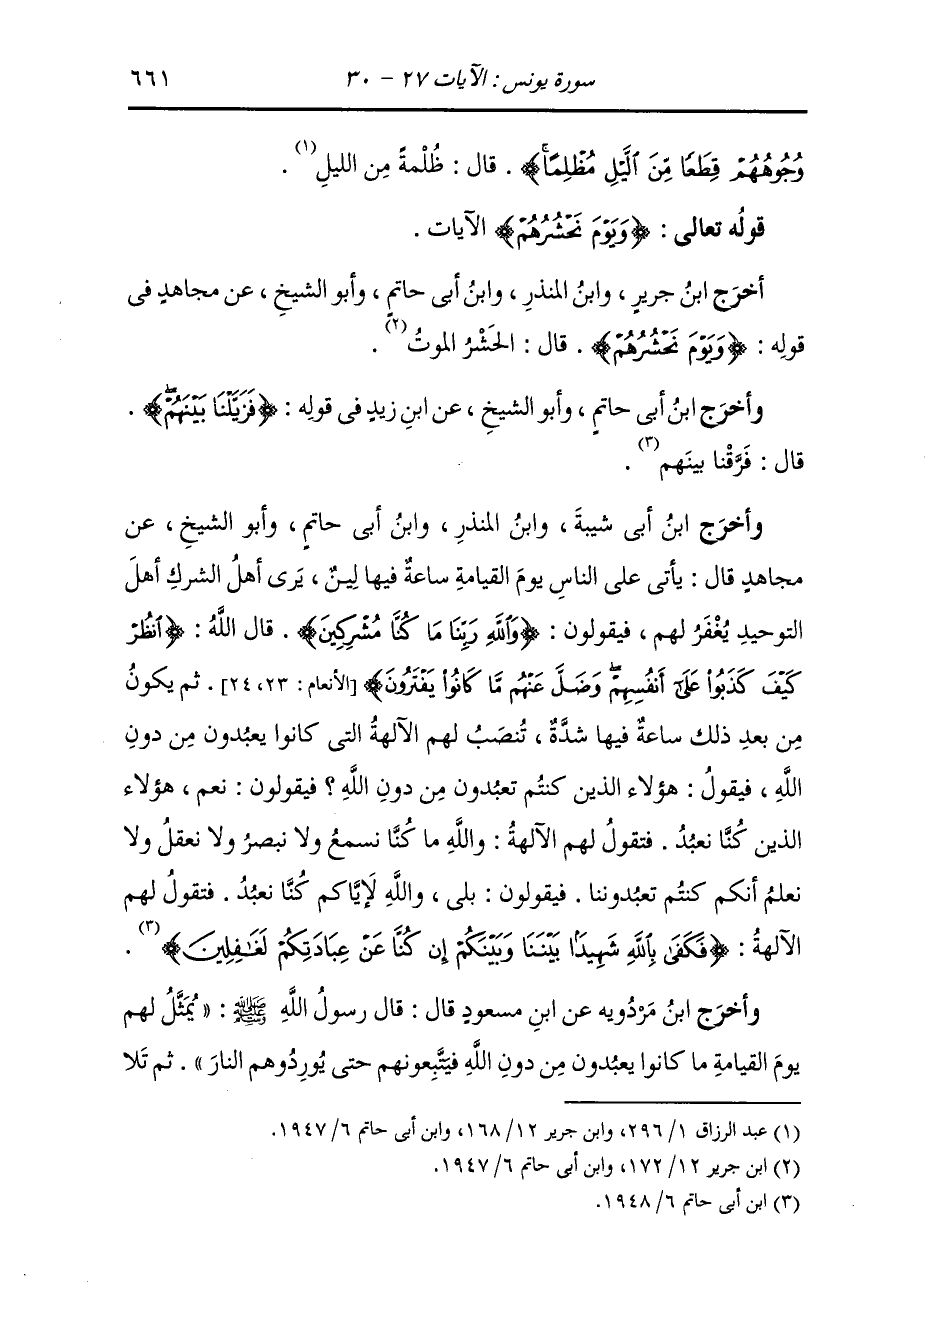 سورة يونس : الآيات ٢٧ - ٣٠ ٦٦١
وُجُوهُهُمْ قِطَعًا مِّنَ ٱلَّيْلِ مُظْلِمًا﴾ . قال : ظُلْمةً مِن الليلِ(١) .
قولُه تعالى : ﴿وَيَوْمَ نَحْشُرُهُمْ﴾ الآيات .
أخرَج ابنُ جريرٍ ، وابنُ المنذرِ ، وابنُ أبى حاتمٍ ، وأبو الشيخِ ، عن مجاهدٍ فى
قولِه : ﴿وَيَوْمَ نَحْشُرُهُمْ﴾ . قال : الحَشْرُ الموتُ(٢) .
وأخرَج ابنُ أبى حاتمٍ ، وأبو الشيخِ ، عن ابنِ زيدٍ فى قولِه : ﴿فَزَيَّلْنَا بَيْنَهُمْۖ﴾ .
قال : فَرَّقْنا بينَهم(٣) .
وأخرَج ابنُ أبى شيبةَ ، وابنُ المنذرِ ، وابنُ أبى حاتمٍ ، وأبو الشيخِ ، عن
مجاهدٍ قال : يأتى على الناسِ يومَ القيامةِ ساعةٌ فيها لِينٌ ، يَرى أهلُ الشركِ أهلَ
التوحيدِ يُغْفَرُ لهم ، فيقولون : ﴿وَٱللَّهِ رَبِّنَا مَا كُنَّا مُشْرِكِينَ﴾ . قال اللَّهُ : ﴿ٱنظُرْ
كَيْفَ كَذَبُوا۟ عَلَىٰٓ أَنفُسِهِمْۖ وَضَلَّ عَنْهُم مَّا كَانُوا۟ يَفْتَرُونَ﴾ [الأنعام : ٢٣، ٢٤] . ثم يكونُ
مِن بعدِ ذلك ساعةٌ فيها شدَّةٌ ، تُنصَبُ لهم الآلهةُ التى كانوا يعبُدون مِن دونِ
اللَّهِ ، فيقولُ : هؤلاء الذين كنتُم تعبُدون مِن دونِ اللَّهِ ؟ فيقولون : نعم ، هؤلاء
الذين كُنَّا نعبُدُ . فتقولُ لهم الآلهةُ : واللَّهِ ما كُنَّا نسمعُ ولا نبصرُ ولا نعقلُ ولا
نعلمُ أنكم كنتُم تعبُدوننا . فيقولون : بلى ، واللَّهِ لَإيَّاكم كُنَّا نعبُدُ . فتقولُ لهم
الآلهةُ : ﴿فَكَفَىٰ بِٱللَّهِ شَهِيدًۢا بَيْنَنَا وَبَيْنَكُمْ إِن كُنَّا عَنْ عِبَادَتِكُمْ لَغَـٰفِلِينَ﴾(٣) .
وأخرَج ابنُ مَرْدُويه عن ابنِ مسعودٍ قال : قال رسولُ اللَّهِ ﷺ : « يُمَثَّلُ لهم
يومَ القيامةِ ما كانوا يعبُدون مِن دونِ اللَّهِ فيَتَّبِعونهم حتى يُورِدُوهم النارَ » . ثم تَلا
(١) عبد الرزاق ١/ ٢٩٦، وابن جرير ١٢/ ١٦٨، وابن أبى حاتم ٦/ ١٩٤٧.
(٢) ابن جرير ١٢/ ١٧٢، وابن أبى حاتم ٦/ ١٩٤٧.
(٣) ابن أبى حاتم ٦/ ١٩٤٨.